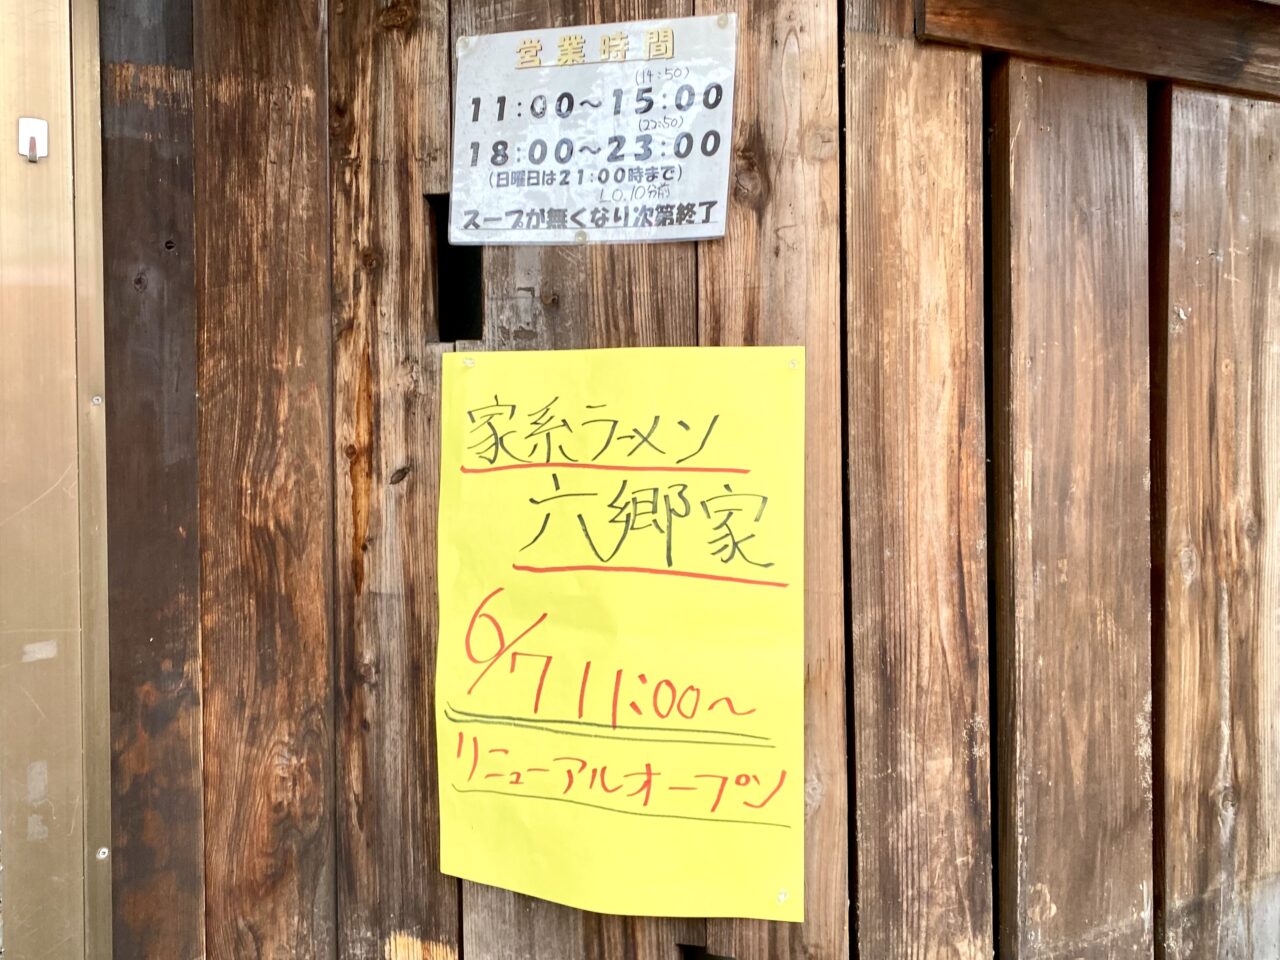 営業時間
(14:50)
11:00～15:00
(22:50)
18:00～23:00
(日曜日は21:00時まで)
L.O.10分前
スープが無くなり次第終了
家系ラーメン
六郷家
6/7 11:00～
リニューアルオープン